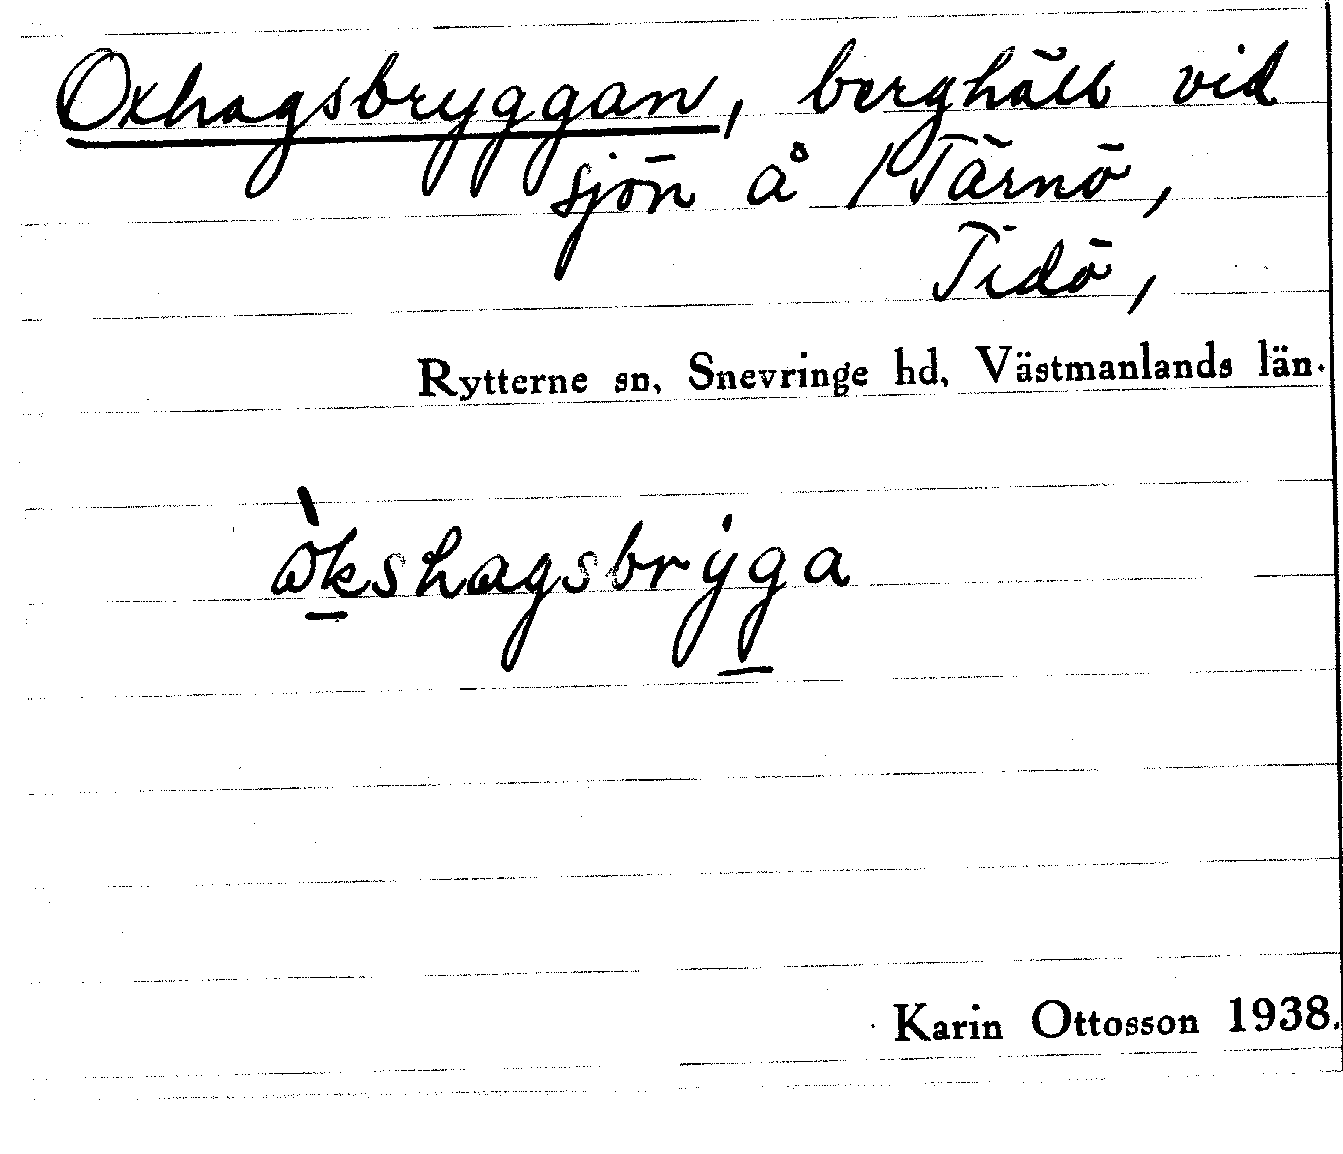 Oxhagsbryggan, berghäll vid
sjön å /Tärnö,
Tidö,
Rytterne sn, Snevringe hd, Västmanlands län.
òk̲shagsbrẏg̲a
Karin Ottosson 1938.